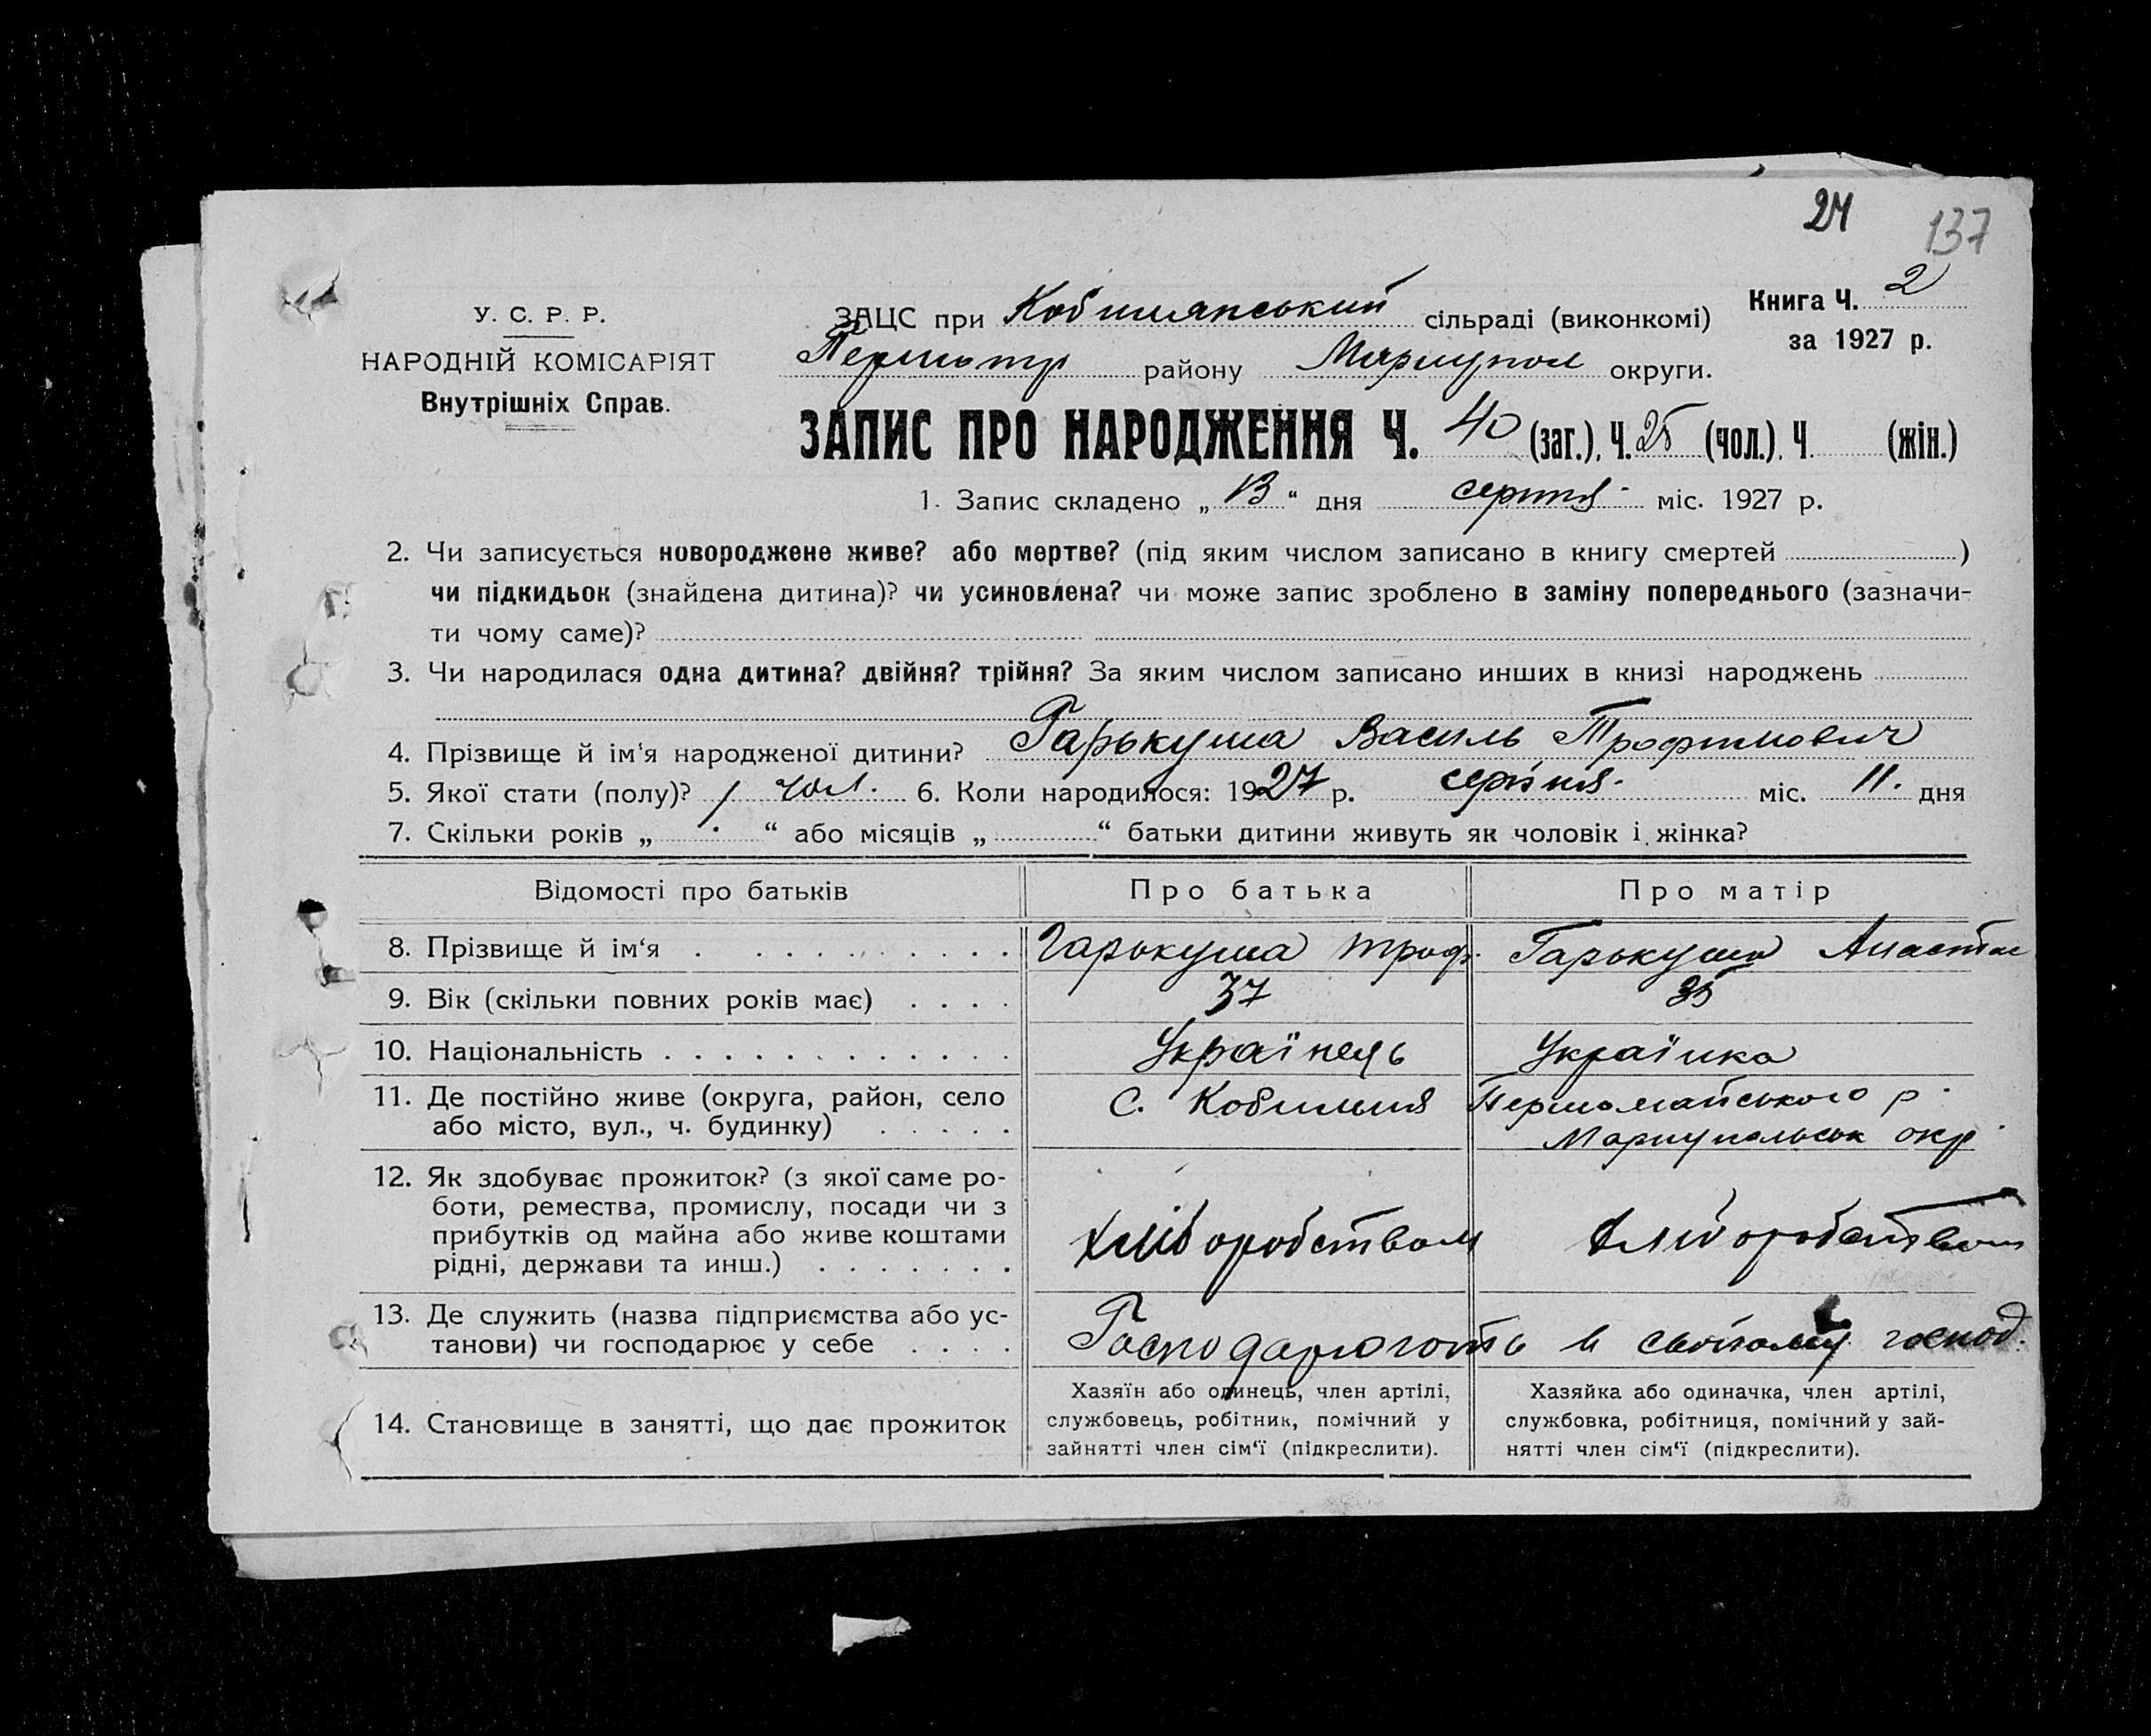 24 137
У. С. Р. Р.
НАРОДНІЙ КОМІСАРІЯТ
Внутрішніх Справ.
ЗАЦС при Кобилянський сільраді (виконкомі)
Книга Ч. 2
району Мариупол округи.
за 1927 р.
ЗАПИС ПРО НАРОДЖЕННЯ Ч. 40 (заг.), Ч. 25 (чол.). Ч. (жін.)
1. Запис складено „ 13 “ дня серпня міс. 1927 р.
2. Чи записується новороджене живе? або мертве? (під яким числом записано в книгу смертей )
чи підкидьок (знайдена дитина)? чи усиновлена? чи може запис зроблено в заміну попереднього (зазначи-
ти чому саме)?
3. Чи народилася одна дитина? двійня? трійня? За яким числом записано инших в книзі народжень
4. Прізвище й ім‘я народженої дитини? Гарькуша Василь Трофимович
5. Якої стати (полу)? чол. 6. Коли народилося: 1927 р. серпня міс. 11. дня
7. Скільки років „ “ або місяців „ “ батьки дитини живуть як чоловік і жінка?
Відомості про батьків Про батька Про матір
8. Прізвище й ім‘я Гарькуша Троф. Гарькуша Анастас
9. Вік (скільки повних років має) 37 35
10. Національність Українець Українка
11. Де постійно живе (округа, район, село С. Кобильня Первомайського р.
або місто, вул., ч. будинку) Мариупольськ окр.
12. Як здобуває прожиток? (з якої саме ро-
боти, ремества, промислу, посади чи з
прибутків од майна або живе коштами хліборобством хліборобством
рідні, держави та инш.)
13. Де служить (назва підприємства або ус-
танови) чи господарює у себе Господарюють в своїому господ.
14. Становище в занятті, що дає прожиток
Хазяїн або одинець, член артілі,
службовець, робітник, помічний у
зайнятті член сім‘ї (підкреслити).
Хазяйка або одиначка, член артілі,
службовка, робітниця, помічний у зай-
нятті член сім‘ї (підкреслити).